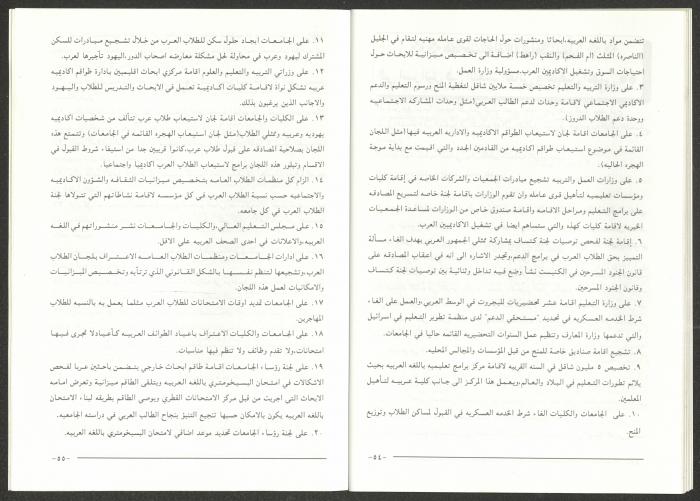 تتضمن مواد باللغه العربيه،ابحاثا ومنشورات حول الحاجات لقوى عامله مهنيه لتقام في الجليل
(الناصره) المثلث (ام الفحم) والنقب (راهط) اضافة الى تخصيص ميزانية للابحاث حول
احتياجات السوق وتشغيل الاكاديميين العرب.مسؤولية وزارة العمل.
٣. على وزارة التربيه والتعليم تخصيص خمسة ملايين شاقل لتغطية المنح ورسوم التعليم والدعم
الاكاديمي الاجتماعي لاقامة وحدات لدعم الطالب العربي(مثل وحدات المشاركه الاجتماعيه
ووحدة دعم الطلاب الدروز).
٤. على الجامعات اقامة لجان لاستيعاب الطواقم الاكاديميه والاداريه العربيه فيها(مثل اللجان
القائمة في موضوع استيعاب طواقم اكاديميه من القادمين الجدد والتي اقيمت مع بداية موجة
الهجره الحاليه).
٥. على وزارات العمل والتربيه تشجيع مبادرات الجمعيات والشركات الخاصه في إقامة كليات
ومؤسسات تعليميه لتأهيل قوى عامله وان تقوم الوزارات باقامة لجنة خاصه لتسريع المصادقه
على برامج التعليم ومراحل الاقامه واقامة صندوق خاص من الوزارات لمساعدة الجمعيات
الخيريه لاقامة كليات كهذه والتي ستساهم ايضا في تشغيل الاكاديميين العرب.
٦. إقامة لجنة لفحص توصيات لجنة كتساف بمشاركة ممثلي الجمهور العربي بهدف الغاء مسألة
التمييز بحق الطلاب العرب في برامج الدعم,وتجدر الاشاره الى انه في اعقاب المصادقه على
قانون الجنود المسرحين في الكنيست نشأ وضع فيه تداخل وثنائية بين توصيات لجنة كتساف
وقانون الجنود المسرحين.
٧. على وزارة التعليم اقامة عشر تحضيريات للبجروت في الوسط العربي،والعمل على الغاء
شرط الخدمه العسكريه في تحديد "مستحقي الدعم" لدى منظمة تطوير التعليم في اسرائيل
والتي تدعمها وزارة المعارف وتنظيم عمل السنوات التحضيريه القائمه حاليا في الجامعات.
٨. تشجيع اقامة صناديق خاصة للمنح من قبل المؤسسات والمجالس المحليه.
٩. تخصيص ٥ مليون شاقل في السنه القريبه لاقامة مركز برامج تعليميه باللغه العربيه بحيث
يلائم تطورات التعليم في البلاد والعالم،ويعمل هذا المركز الى جانب كلية عربيه لتأهيل
المعلمين.
١٠. على الجامعات والكليات الغاء شرط الخدمه العسكريه في القبول لمساكن الطلاب وتوزيع
المنح.
-٥٤-
١١. على الجامعات ايجاد حلول سكن للطلاب العرب من خلال تشجيع مبادرات للسكن
المشترك ليهود وعرب في محاولة لحل مشكلة معارضه اصحاب الدور،اليهود تأجيرها لعرب.
١٢. على وزارتي التربيه والتعليم والعلوم اقامة مركزي ابحاث اقليميين بادارة طواقم اكاديميه
عربيه تشكل نواة لاقامة كليات اكاديمية تعمل في الابحاث والتدريس للطلاب واليهود
والاجانب الذين يرغبون بذلك.
١٣. على الكليات والجامعات اقامة لجان لاستيعاب طلاب عرب تتألف من شخصيات اكاديميه
يهوديه وعربيه وممثلي الطلاب(مثل لجان استيعاب الهجره القائمه في الجامعات) وتتمتع هذه
اللجان بصلاحية المصادقه على قبول طلاب عرب،كانوا قريبين جدا من استيفاء شروط القبول في
الاقسام وتبلور هذه اللجان برامج لاستيعاب الطلاب العرب اكاديميا واجتماعيا.
١٤. الزام كل منظمات الطلاب العامه بتخصيص ميزانيات الثقافه والشؤون الاكاديميه
والاجتماعيه حسب نسبة الطلاب العرب في كل مؤسسه لاقامة نشاطاتهم التي تتولاها لجنة
الطلاب العرب في كل جامعه.
١٥. على مجلس التعليم العالي،والكليات والجامعات نشر منشوراتهم في اللغه
العربيه،والاعلانات في احدى الصحف العربيه على الاقل.
١٦. على ادارات الجامعات ومنظمات الطلاب العامه الاعتراف بلجان الطلاب
العرب،وتشجيعها لتنظم نفسها بالشكل القانوني الذي ترتأيه وتخصيص الميزانيات
والامكانيات لعمل هذه اللجان.
١٧. على الجامعات تمديد اوقات الامتحانات للطلاب العرب مثلما يعمل به بالنسبه للطلاب
المهاجرين.
١٨. على الجامعات والكليات الاعتراف باعياد الطوائف العربيه كأعيادلا تجرى فيها
امتحانات،ولا تقدم وظائف ولا تنظم فيها مناسبات.
١٩. على لجنة رؤساء الجامعات اقامة طاقم ابحاث خارجي يتضمن باحثين عربا لفحص
الاشكالات في امتحان البسيخومتري باللغه العربيه ويتلقى الطاقم ميزانية وتعرض امامه
الابحاث التى اجريت من قبل مركز الامتحانات القطري ويوصي الطاقم بطريقه لبناء الامتحان
باللغه العربيه يكون بالامكان حسبها تتجيع التنبؤ بنجاح الطالب العربي في دراسته الجامعيه.
٢٠. على لجنة رؤساء الجامعات تحديد موعد اضافي لامتحان البسيخومتري باللغه العربيه.
-٥٥-